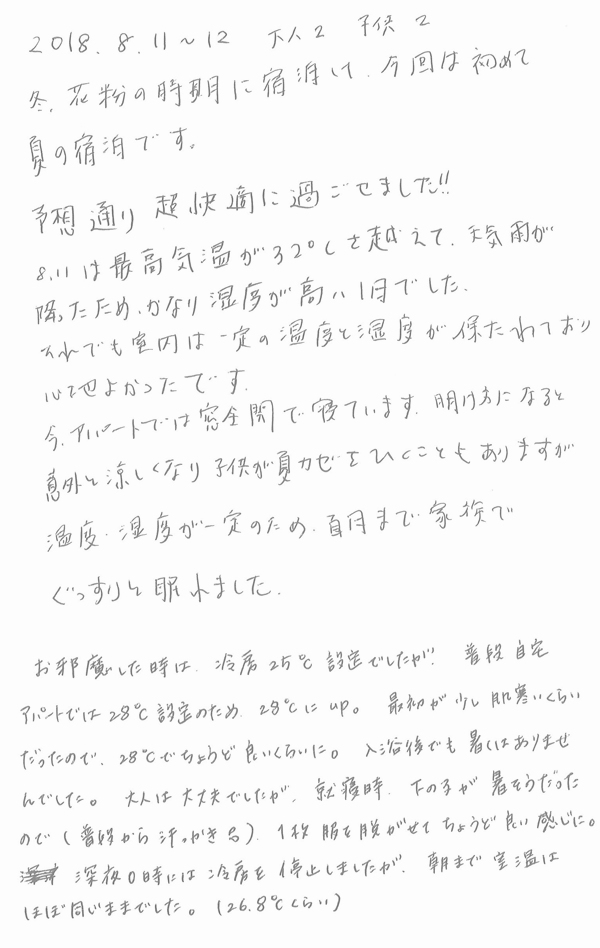 2018. 8. 11～12　大人2　子供2
冬、花粉の時期に宿泊し、今回は初めて
夏の宿泊です。
予想通り 超快適に過ごせました!!
8.11は最高気温が32℃を越えて、天気雨が
降ったため、かなり湿度が高い1日でした。
それでも室内は一定の温度と湿度が保たれており
心地よかったです。
今、アパートでは窓全開で寝ています。明け方になると
意外と涼しくなり子供が夏カゼをひくこともありますが
温度・湿度が一定のため、翌日まで家族で
ぐっすりと眠れました。
お邪魔した時は、冷房25℃設定でしたが、普段自宅
アパートでは28℃設定のため、28℃にup。最初が少し肌寒いくらい
だったので、28℃でちょうど良いくらいに。入浴後でも暑くはありませ
んでした。大人は大丈夫でしたが、就寝時、下の子が暑そうだった
ので(普段から汗っかき)、1枚服を脱がせてちょうど良い感じに。
深夜0時には冷房を停止しましたが、朝まで室温は
ほぼ同じままでした。(26.8℃くらい)